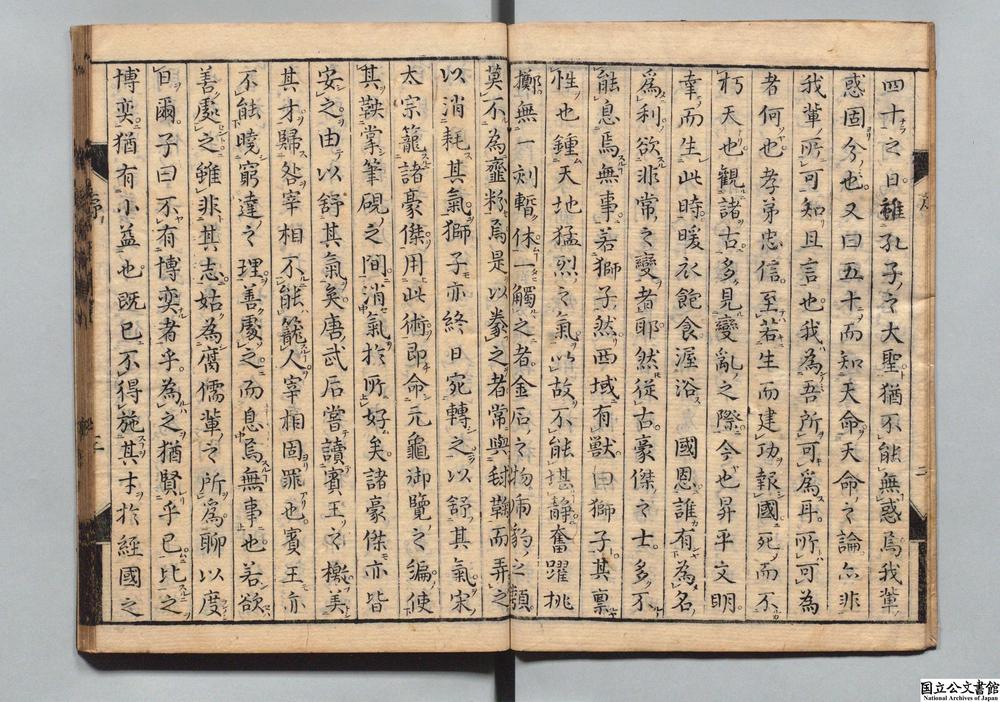 四十之日雖孔子之大聖猶不能無惑焉我輩
惑固分也又曰五十而知天命天命之論亦非
我輩所可知且言也我為吾所可為耳所可為
者何也孝弟忠信至若生而建功報國死而不
朽天也觀諸古多見變亂之際今也昇平文明
幸而生此時暖衣飽食渥浴 國恩誰有為名
為利欲非常之變者耶然從古豪傑之士多不
能息焉無事若獅子然西域有獸曰獅子其稟
性也鍾天地猛烈之氣以故不能堪靜奮躍挑
擲無一刻暫休一觸之者金石之物虎豹之類
莫不為虀粉焉是以豢之者常與毬鞠而弄之
以消耗其氣獅子亦終日宛轉之以舒其氣宋
太宗籠諸豪傑用此術即命元龜御覽之編使
其鞅掌筆硯之間消氣於所好矣諸豪傑亦皆
安之由以舒其氣矣唐武后嘗讀賓王之檄美
其才歸咎宰相不能籠人宰相固罪也賓王亦
不能曉窮達之理善處之而息焉無事也若欲
善處之雖非其志姑為腐儒輩之所為聊以度
日爾子曰不有博奕者乎為之猶賢乎已比之
博奕猶有小益也既已不得施其才於經國之
序
二
国立公文書館
National Archives of Japan